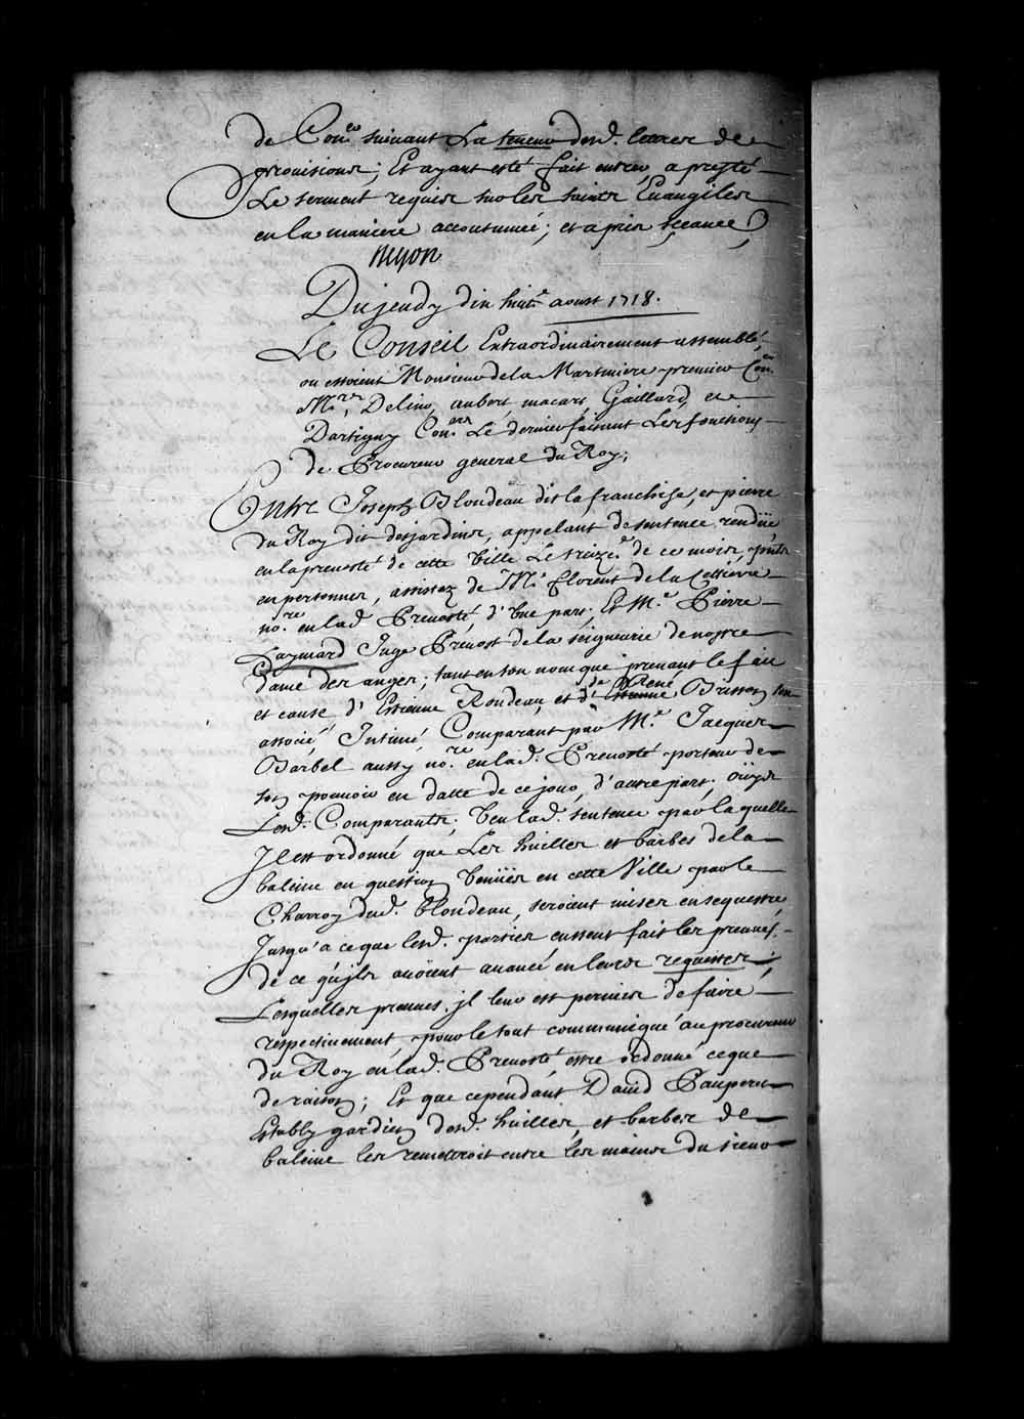 de Con.er suivant La teneur desd. lettres de
provisions; Et ayant esté fait entrer, a presté
Le serment requis sur les saints Evangiles
en la maniere accoutumée; et a pris sceance
Du jeudy dix huit.e aoust 1718.
Le Conseil Extraordinairement assemblé
ou estoient Monsieur de la Martiniere premier Con.er
M.rs Delino, aubert, macart, Gaillard, et
Dartigny Con.ers Le dernier faisant Les fonctions
de Procureur general du Roy;
Entre Joseph Blondeau dit la franchise, et pierre
du Roy dit desjardins, appelant de sentence rendüe
en la prevosté de cette Ville Le seize.e de ce mois, pnts
en personnes, assistez de M.e florent de la Cetiere
no.re en lad. Prevosté, d'Une part; Et M.e Pierre
Haymard Juge Prevost de la seigneurie de nostre
dame des anges; tant en son nom que prenant le fait
et cause d'Estienne Rondeau, et de René d'Estienne Brisson son
associé, Intimé, Comparant par M.e Jacques
Barbel aussy no.re en lad. Prevosté porteur de
son pouvoir en datte de ce jour, d'autre part; oüys
Lesd. Comparants, Veu lad. sentence par laquelle
Il est ordonné que Les huilles et barbes de la
baleine en question Venües en cette Ville par le
Charroy dud. blondeau, seroient mises en sequestre
Jusqu'a ce que lesd. parties eussent fait les preuves
de ce qu'jls avoient avancé en leurs requestes;
Lesquelles preuves jl leur est permis de faire
respectivement, pour le tout communiqué au procureur
du Roy en lad. Prevosté estre ordonné ce que
de raison; Et que cependant David Pauperet
Establÿ gardien desd. huilles et barbes de
baleine les remettroit entre les mains du sieur